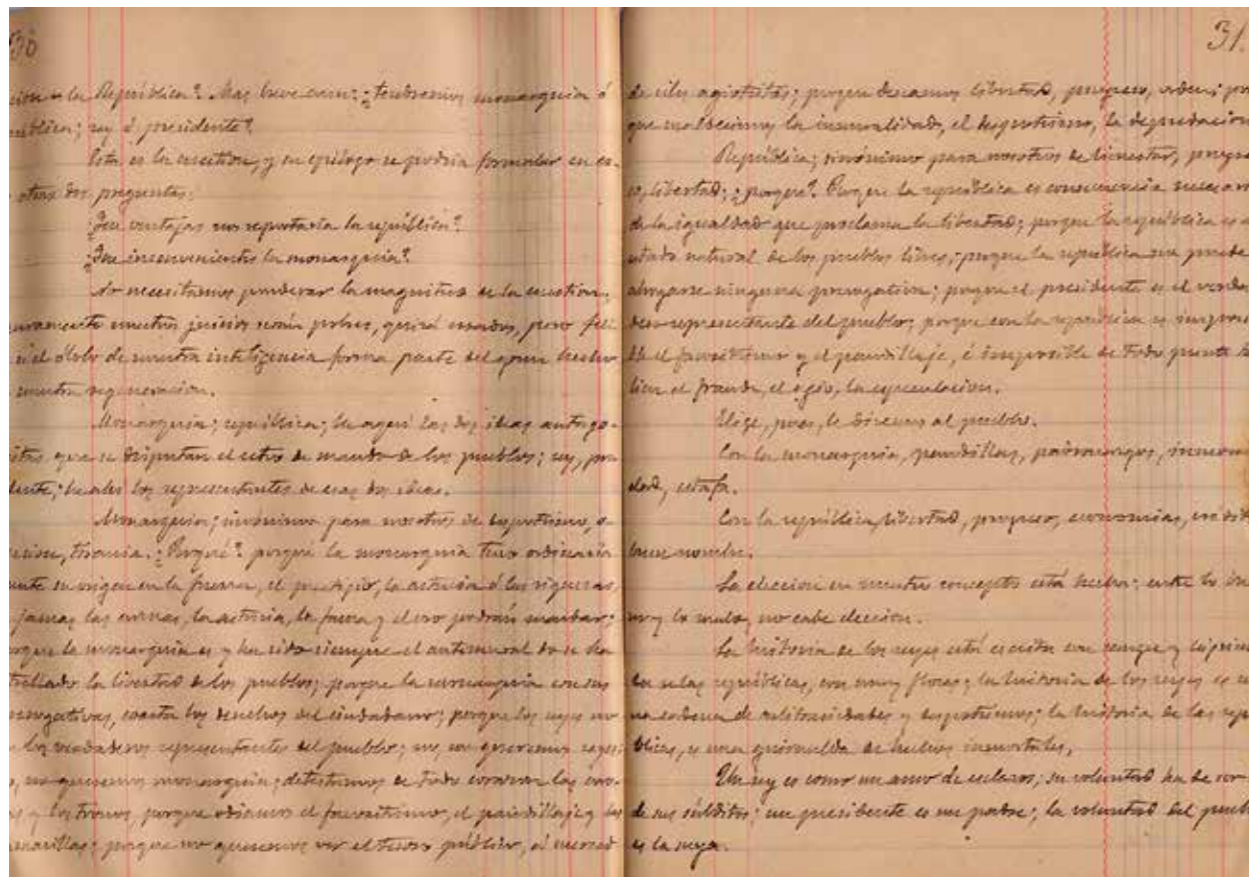 30
cion o la República? Mas breve aun: ¿tendremos monarquia ó
pública; rey ó presidente?
Esta es la cuestion, y su epílogo se podria formular en es-
otras dos preguntas.
¿Que ventajas nos reportaria la república?
¿Que inconvenientes la monarquia?
No necesitamos ponderar la magnitud de la cuestion,
nuestros juicios serán pobres, quizá errados, pero feli
si el óbolo de nuestra inteligencia forma parte del gran
nuestra regeneracion.
Monarquia; república; he aquí las dos ideas antago-
nistas que se disputan el cetro de mando de los pueblos; rey, pre
dente; he ahí los representantes de esas dos ideas.
Monarquia; sinónimo para nosotros de despotismo, o
cion, tirania. ¿Porqué? porqué la monarquia tuvo ordinaria
mente su origen en la fuerza, el prestigio, la astucia ó las riquezas,
jamas las armas, la astucia, la fuerza y el oro podrán mandar;
porque la monarquia es y ha sido siempre el antemural do se ha
estrellado la libertad de los pueblos; porque la monarquia con sus
prerogativas, coarta los derechos del ciudadano; porque los reyes no
los verdaderos representantes del pueblo; no, no queremos reyes;
no queremos monarquia; detestamos de todo corazon las coro-
y los tronos, porque odiamos el favoritismo, el pandillaje y las
camarillas; porque no queremos ver el tesoro público, á merced
31.
de viles agiotistas; porque deseamos libertad, progreso, orden; por
que maldecimos la inmoralidad, el despotismo, la degradacion
República; sinónimo para nosotros de bienestar, progre
so, libertad; ¿porque? Porque la república es consecuencia necesaria
de la igualdad que proclama la libertad; porque la república es el
estado natural de los pueblos libres; porque la república no puede
abrogarse ninguna prerogativa; porque el presidente es el verda
dero representante del pueblo; porque con la república es imposi
ble el favoritismo y el pandillaje, é imposible de todo punto tam
bien el fraude, el agio, la especulacion.
Elige, pues, le diremos al pueblo.
Con la monarquia, pandillas, inmorali
dad, estafa.
Con la república, libertad, progreso, economias, crédito
buen nombre.
La eleccion en nuestro concepto está hecha; entre lo bue
no y lo malo, no cabe eleccion.
La historia de los reyes está escrita con sangre y lágrimas
la de las repúblicas, con amor y flores; la historia de los reyes es u
na cadena de y despotismos; la historia de las repú
blicas, es una guirnalda de hechos inmortales.
Un rey es como un amo de esclavos; su voluntad ha de ser
de sus súbditos; un presidente es un padre; la voluntad del pueblo
es la suya.